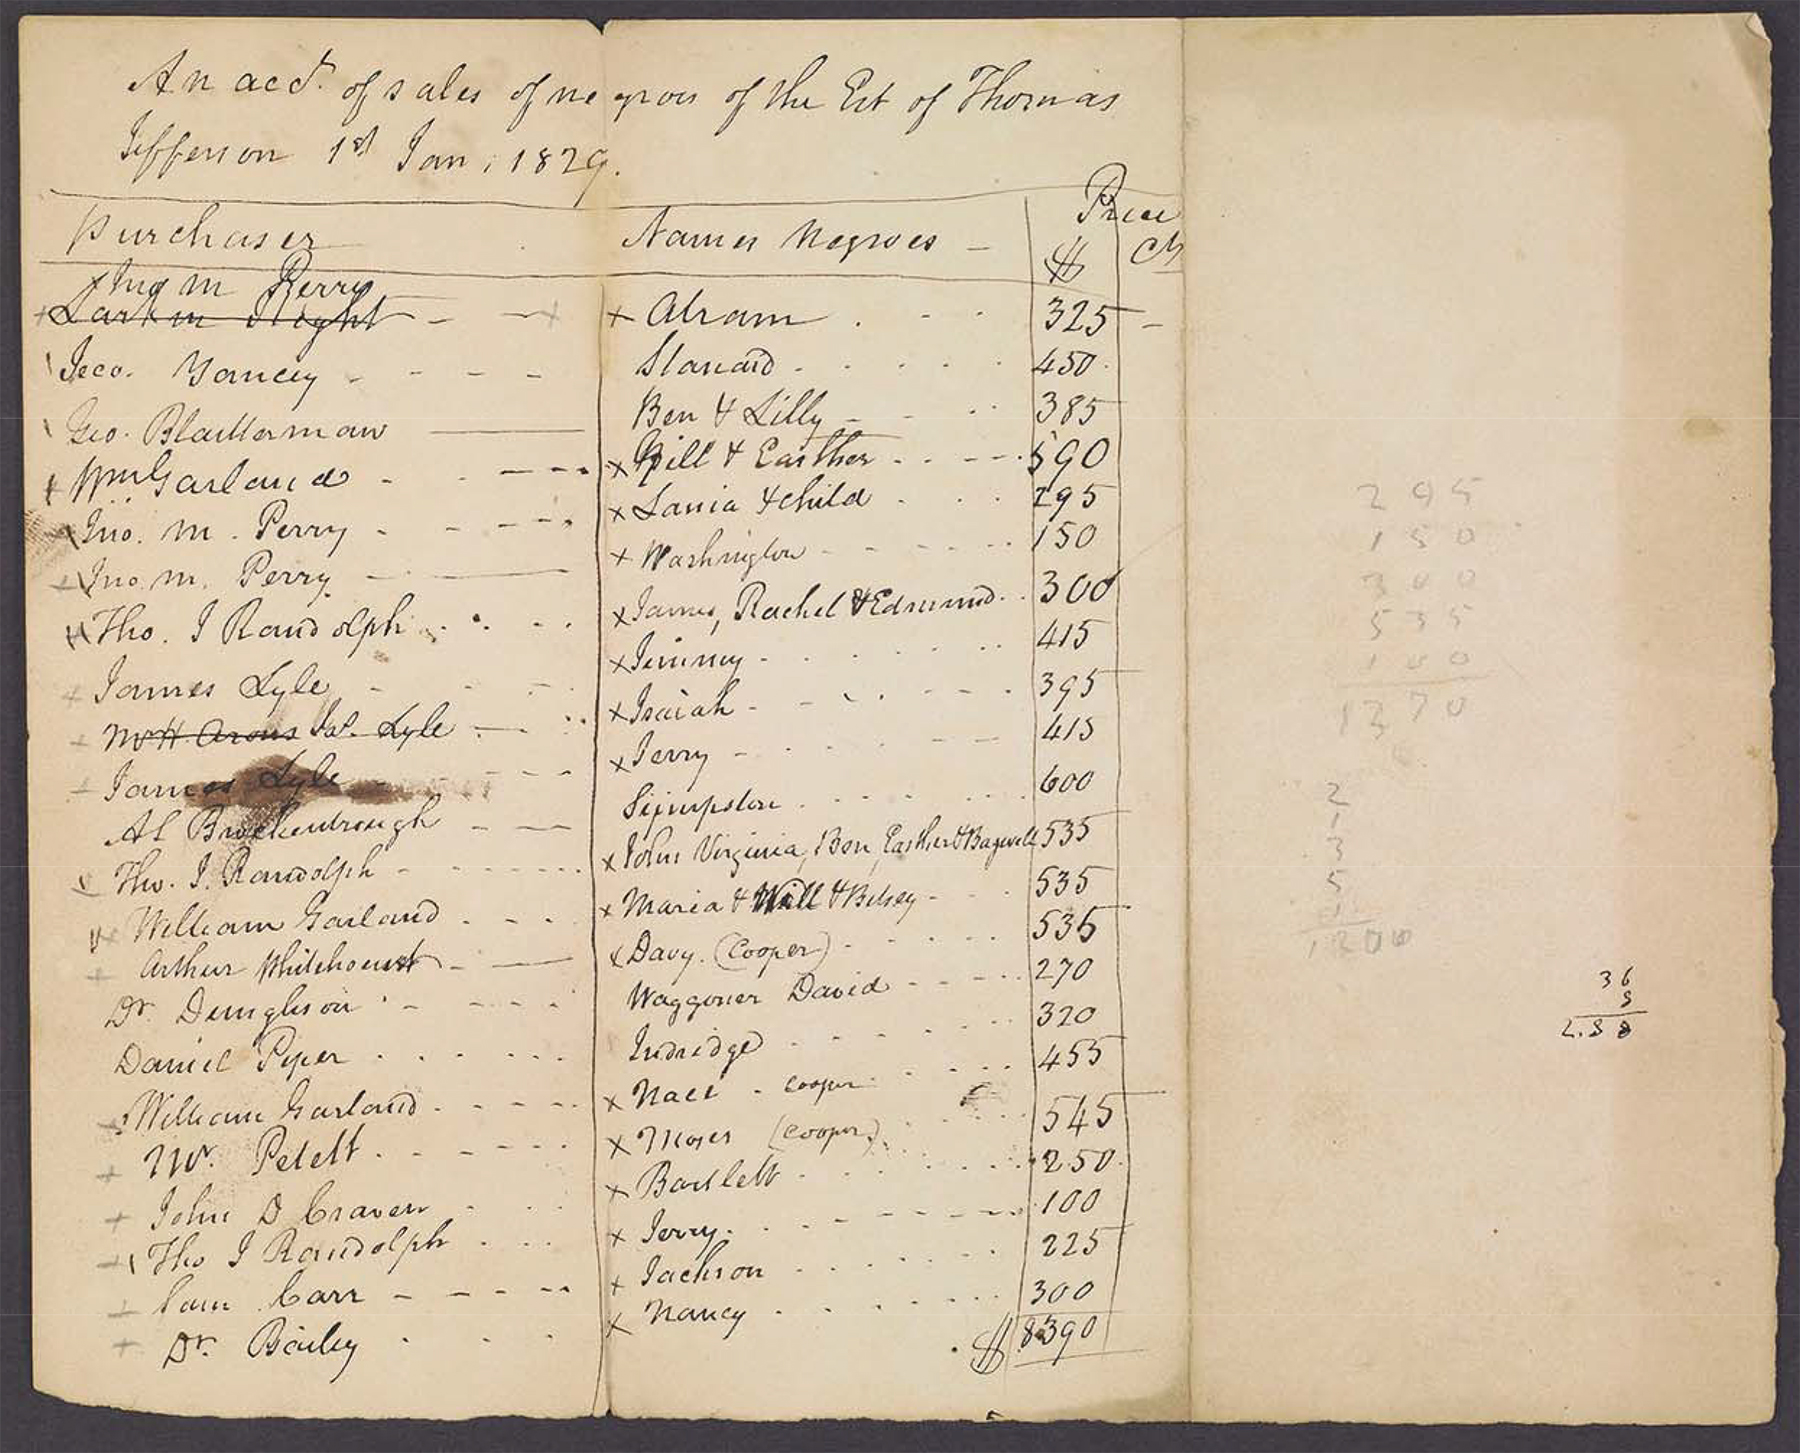 An acct. of sales of negroes of the Est of Thomas
Jefferson 1st Jan, 1829.
Purchaser Names Negroes — Price
$ Cts
Jno M Perry
Larkin + Abram 325 –
Yancey Slanard 450
Geo. Blatterman Ben & Lilly 385
Wm Garland Bill & Easther 590
Jno. M. Perry Lania & child 295
Jno. M. Perry Washington 150
Tho. J Randolph James, Rachel & Edmund 300
James Lyle Jimmy 415
Mr H Jas. Lyle Isaiah 395
James Lyle Jerry 415
Al Brockenbrough 600
Tho. J. Randolph John Virginia, Ben, Easther & Bagwell 535
William Garland Maria & Will & Betsey 535
Arthur Whitehourst Davy. (Cooper) 535
Dr. Dunglison Waggoner David 270
Daniel Piper Indridge 320
William Garland Nace - Cooper 455
Mr. Petett Moses (Cooper) 545
John D Craven Bartlett 250
Tho J Randolph Jerry. 100
Sam Carr Jackson 225
Dr. Bailey Nancy 300
$ 8390
295
150
300
535
1270
2
1
3
5
1200
36
8
2.88